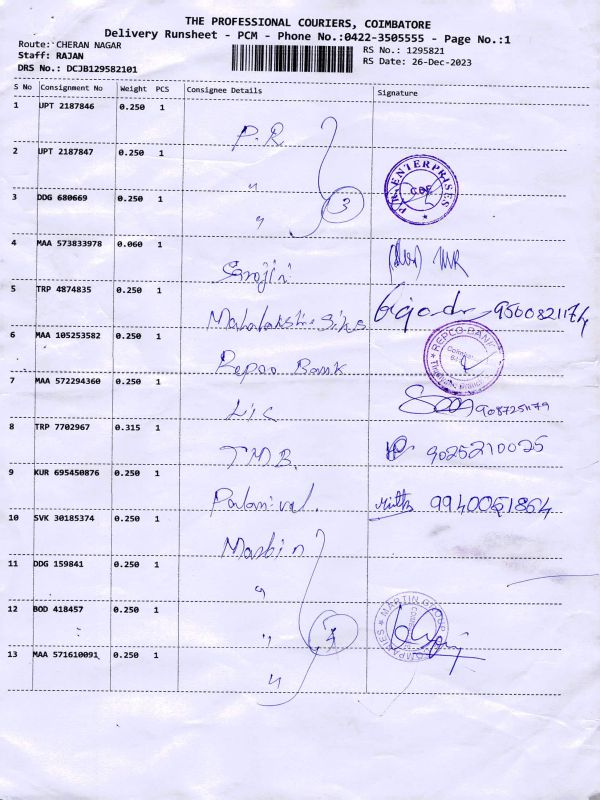 THE PROFESSIONAL COURIERS, COIMBATORE
Delivery Runsheet - PCM - Phone No.:0422-3505555 - Page No.:1
Route: CHERAN NAGAR
RS No.: 1295821
Staff: RAJAN
RS Date: 26-Dec-2023
DRS No.: DCJB129582101
S No Consignment No Weight PCS Consignee Details Signature
1 UPT 2187846 0.250 1 P.R
2 UPT 2187847 0.250 1 "
P.R. ENTERPRISES CBE
3 DDG 680669 0.250 1 " 3
4 MAA 573833978 0.060 1 Sarojini
5 TRP 4874835 0.250 1 Mahalakshmi Silks 9500821174
6 MAA 105253582 0.250 1 Repco Bank
REPCO BANK
7 MAA 572294360 0.250 1 Lic
8 TRP 7702967 0.315 1 T.M.B. 9025210025
9 KUR 695450876 0.250 1 Palanivel.
10 SVK 30185374 0.250 1 Martin
11 DDG 159841 0.250 1 "
12 BOD 418457 0.250 1 "
MARTIN GROUP COMPANIES
13 MAA 571610091 0.250 1 "